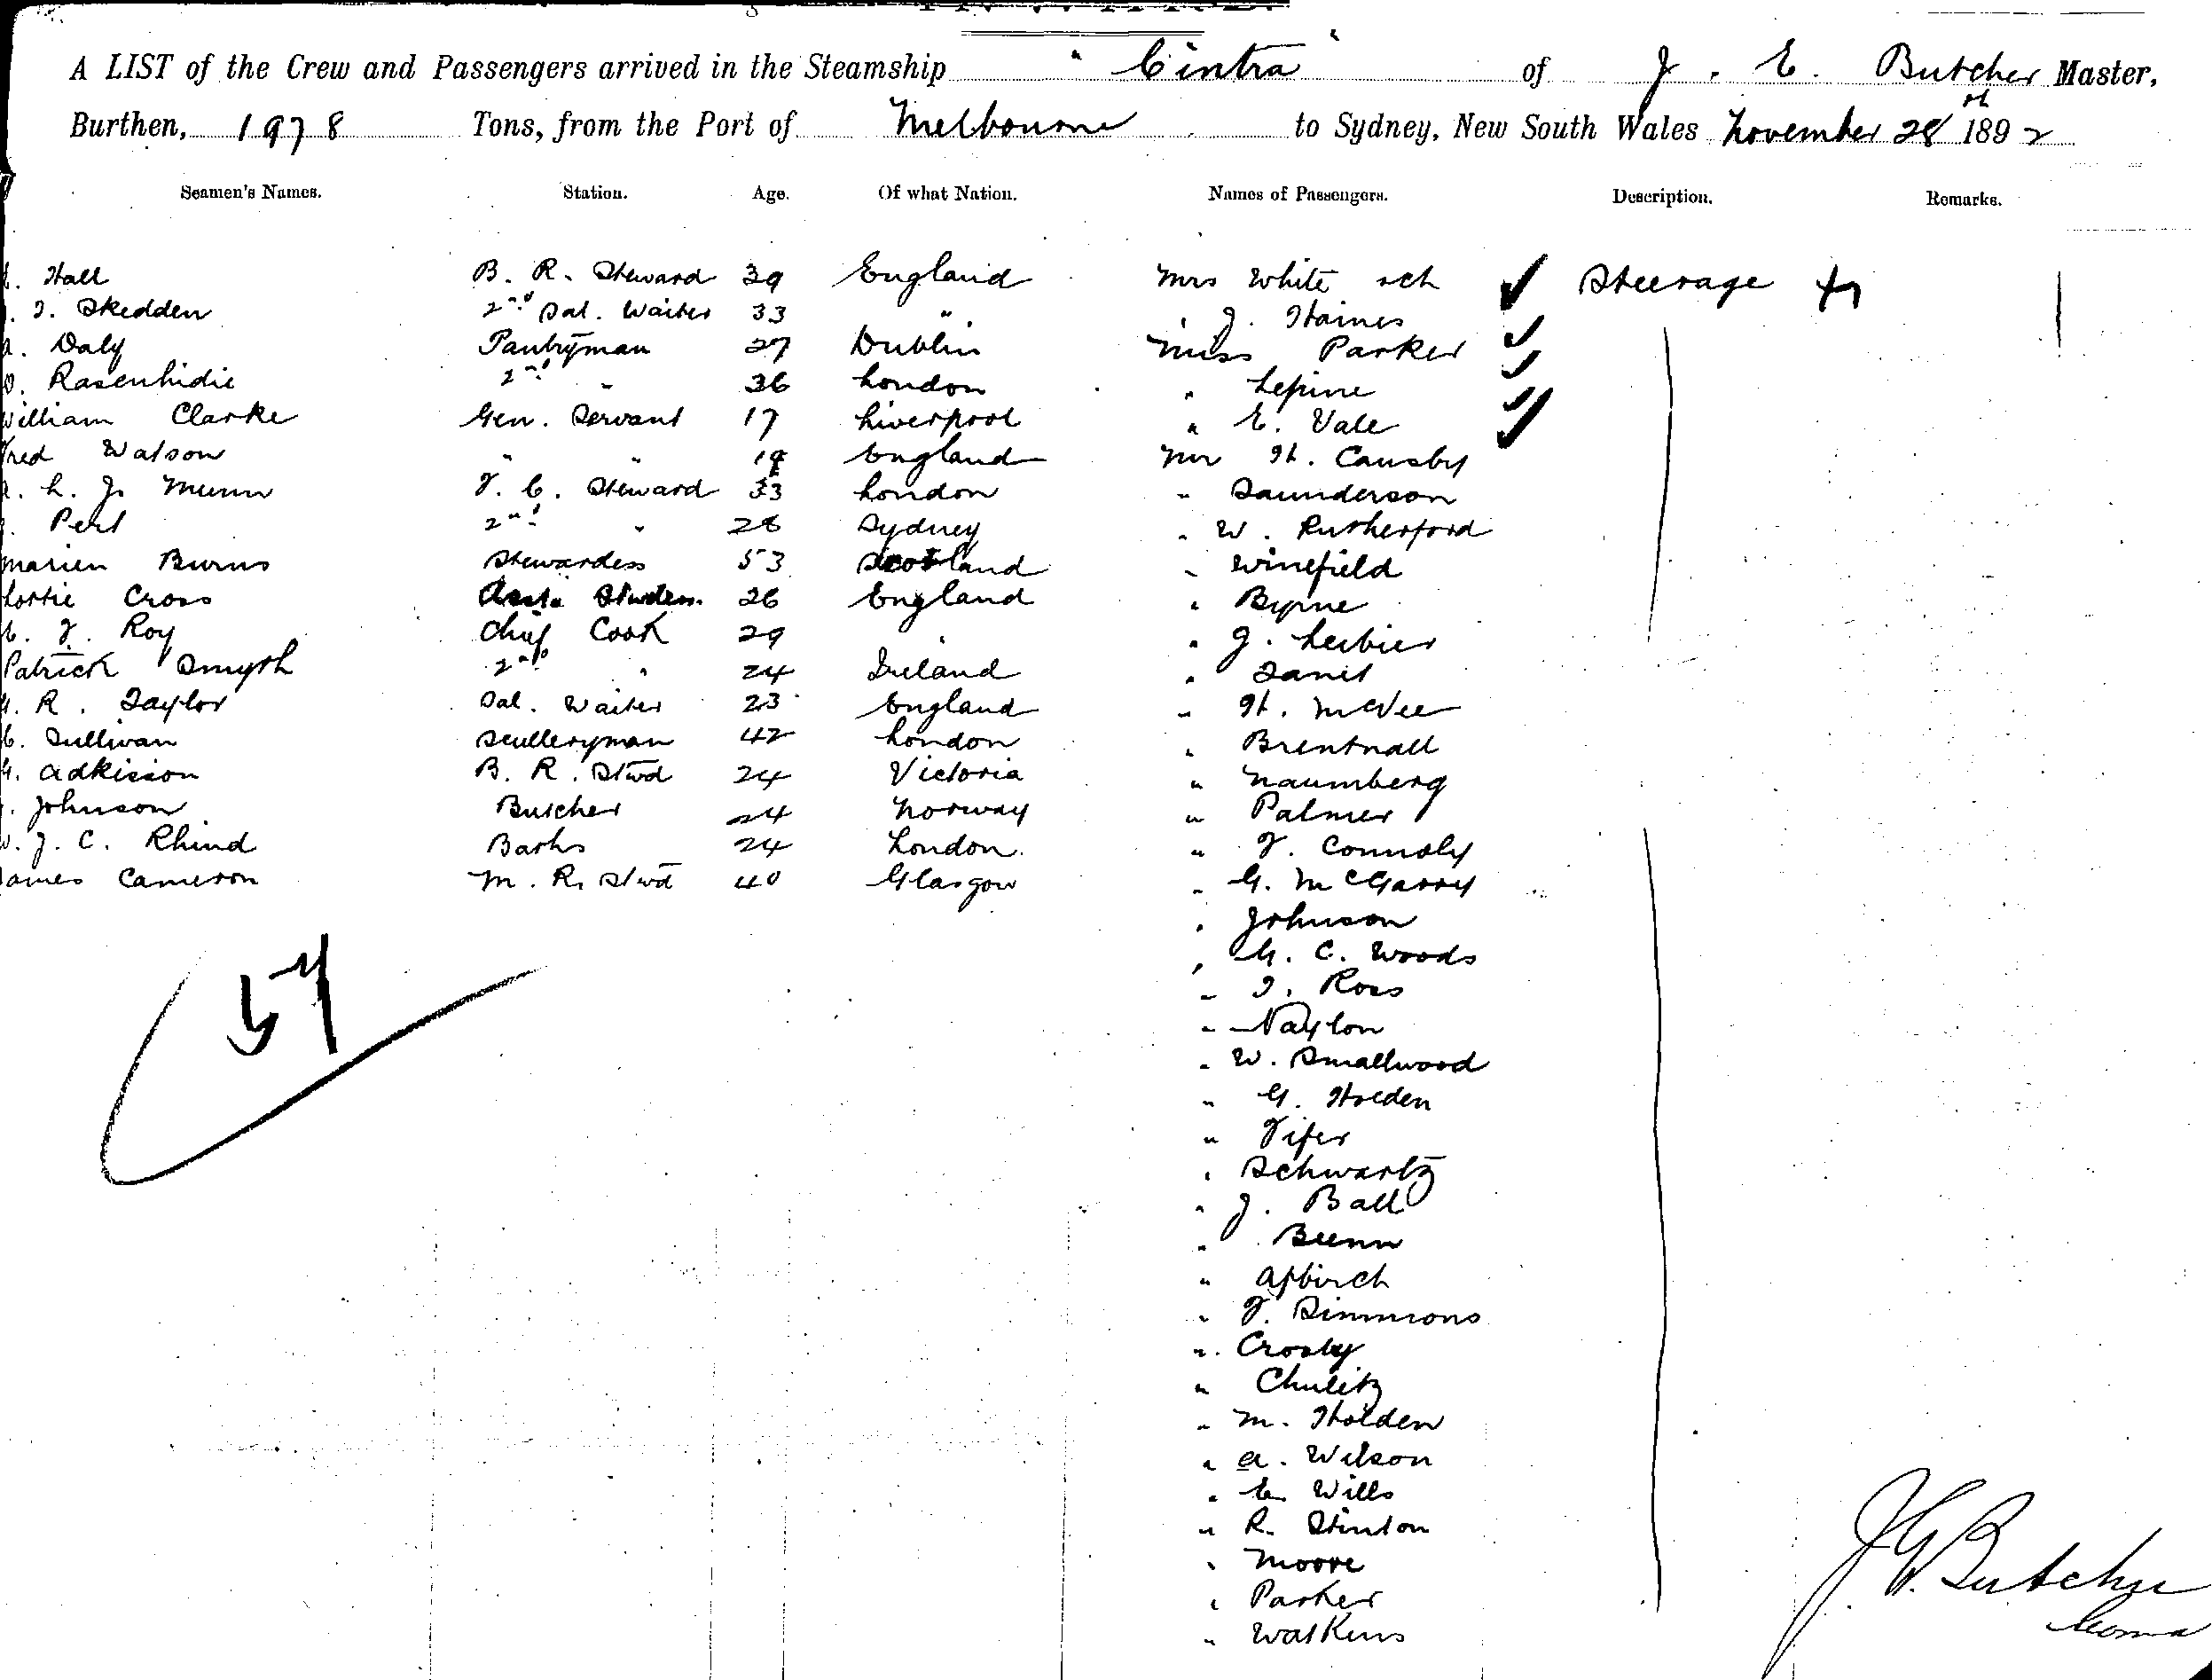 A LIST of the Crew and Passengers arrived in the Steamship "Cintra" of J. E. Butcher Master,
Burthen, 1978 Tons, from the Port of Melbourne to Sydney, New South Wales November 28th 1892
Seamen's Names. Station. Age. Of what Nation. Names of Passengers. Description. Remarks.
Hall B. R. Steward 39 England Mrs White sch Steerage
J. Skedden 2nd Sal. Waiter 33 " " J. Haines
Daly Pantryman 27 Dublin Miss Parker
2nd " 36 London " Lepine
William Clarke Gen. Servant 17 Liverpool " E. Vale
Fred Watson " " England Mr H. Causby
L. J. Munn F. C. Steward 33 London " Saunderson
Perl 2nd " 28 Sydney " W. Rutherford
Marien Burns Stewardess 53 Scotland " Winefield
Lottie Cross Stwdess. 26 England " Byrne
Roy Chief Cook 29 " " J. Lerbier
Patrick Smyth 2nd " 24 Ireland "
R. Taylor Sal. Waiter 23 England " H. McVee
Sullivan Sculleryman 42 London " Brentnall
Adkission B. R. Stwd 24 Victoria " Naumberg
Johnson Butcher 24 Norway " Palmer
J. C. Rhind Baths 24 London. " F. Connoly
James Cameron M. R. Stwd 40 Glasgow " G. McGarry
" Johnson
" G. C. Woods
" J. Ross
" Naylon
" W. Smallwood
" G. Holden
" Fifer
" Schwartz
" J. Ball
" Bunn
" Apbirch
" F. Simmons
" Crosby
" Chulitz
" M. Holden
" A. Wilson
" E. Wills
" R. Stinton
" Moore
" Parker
" Watkins
57
J. E. Butcher